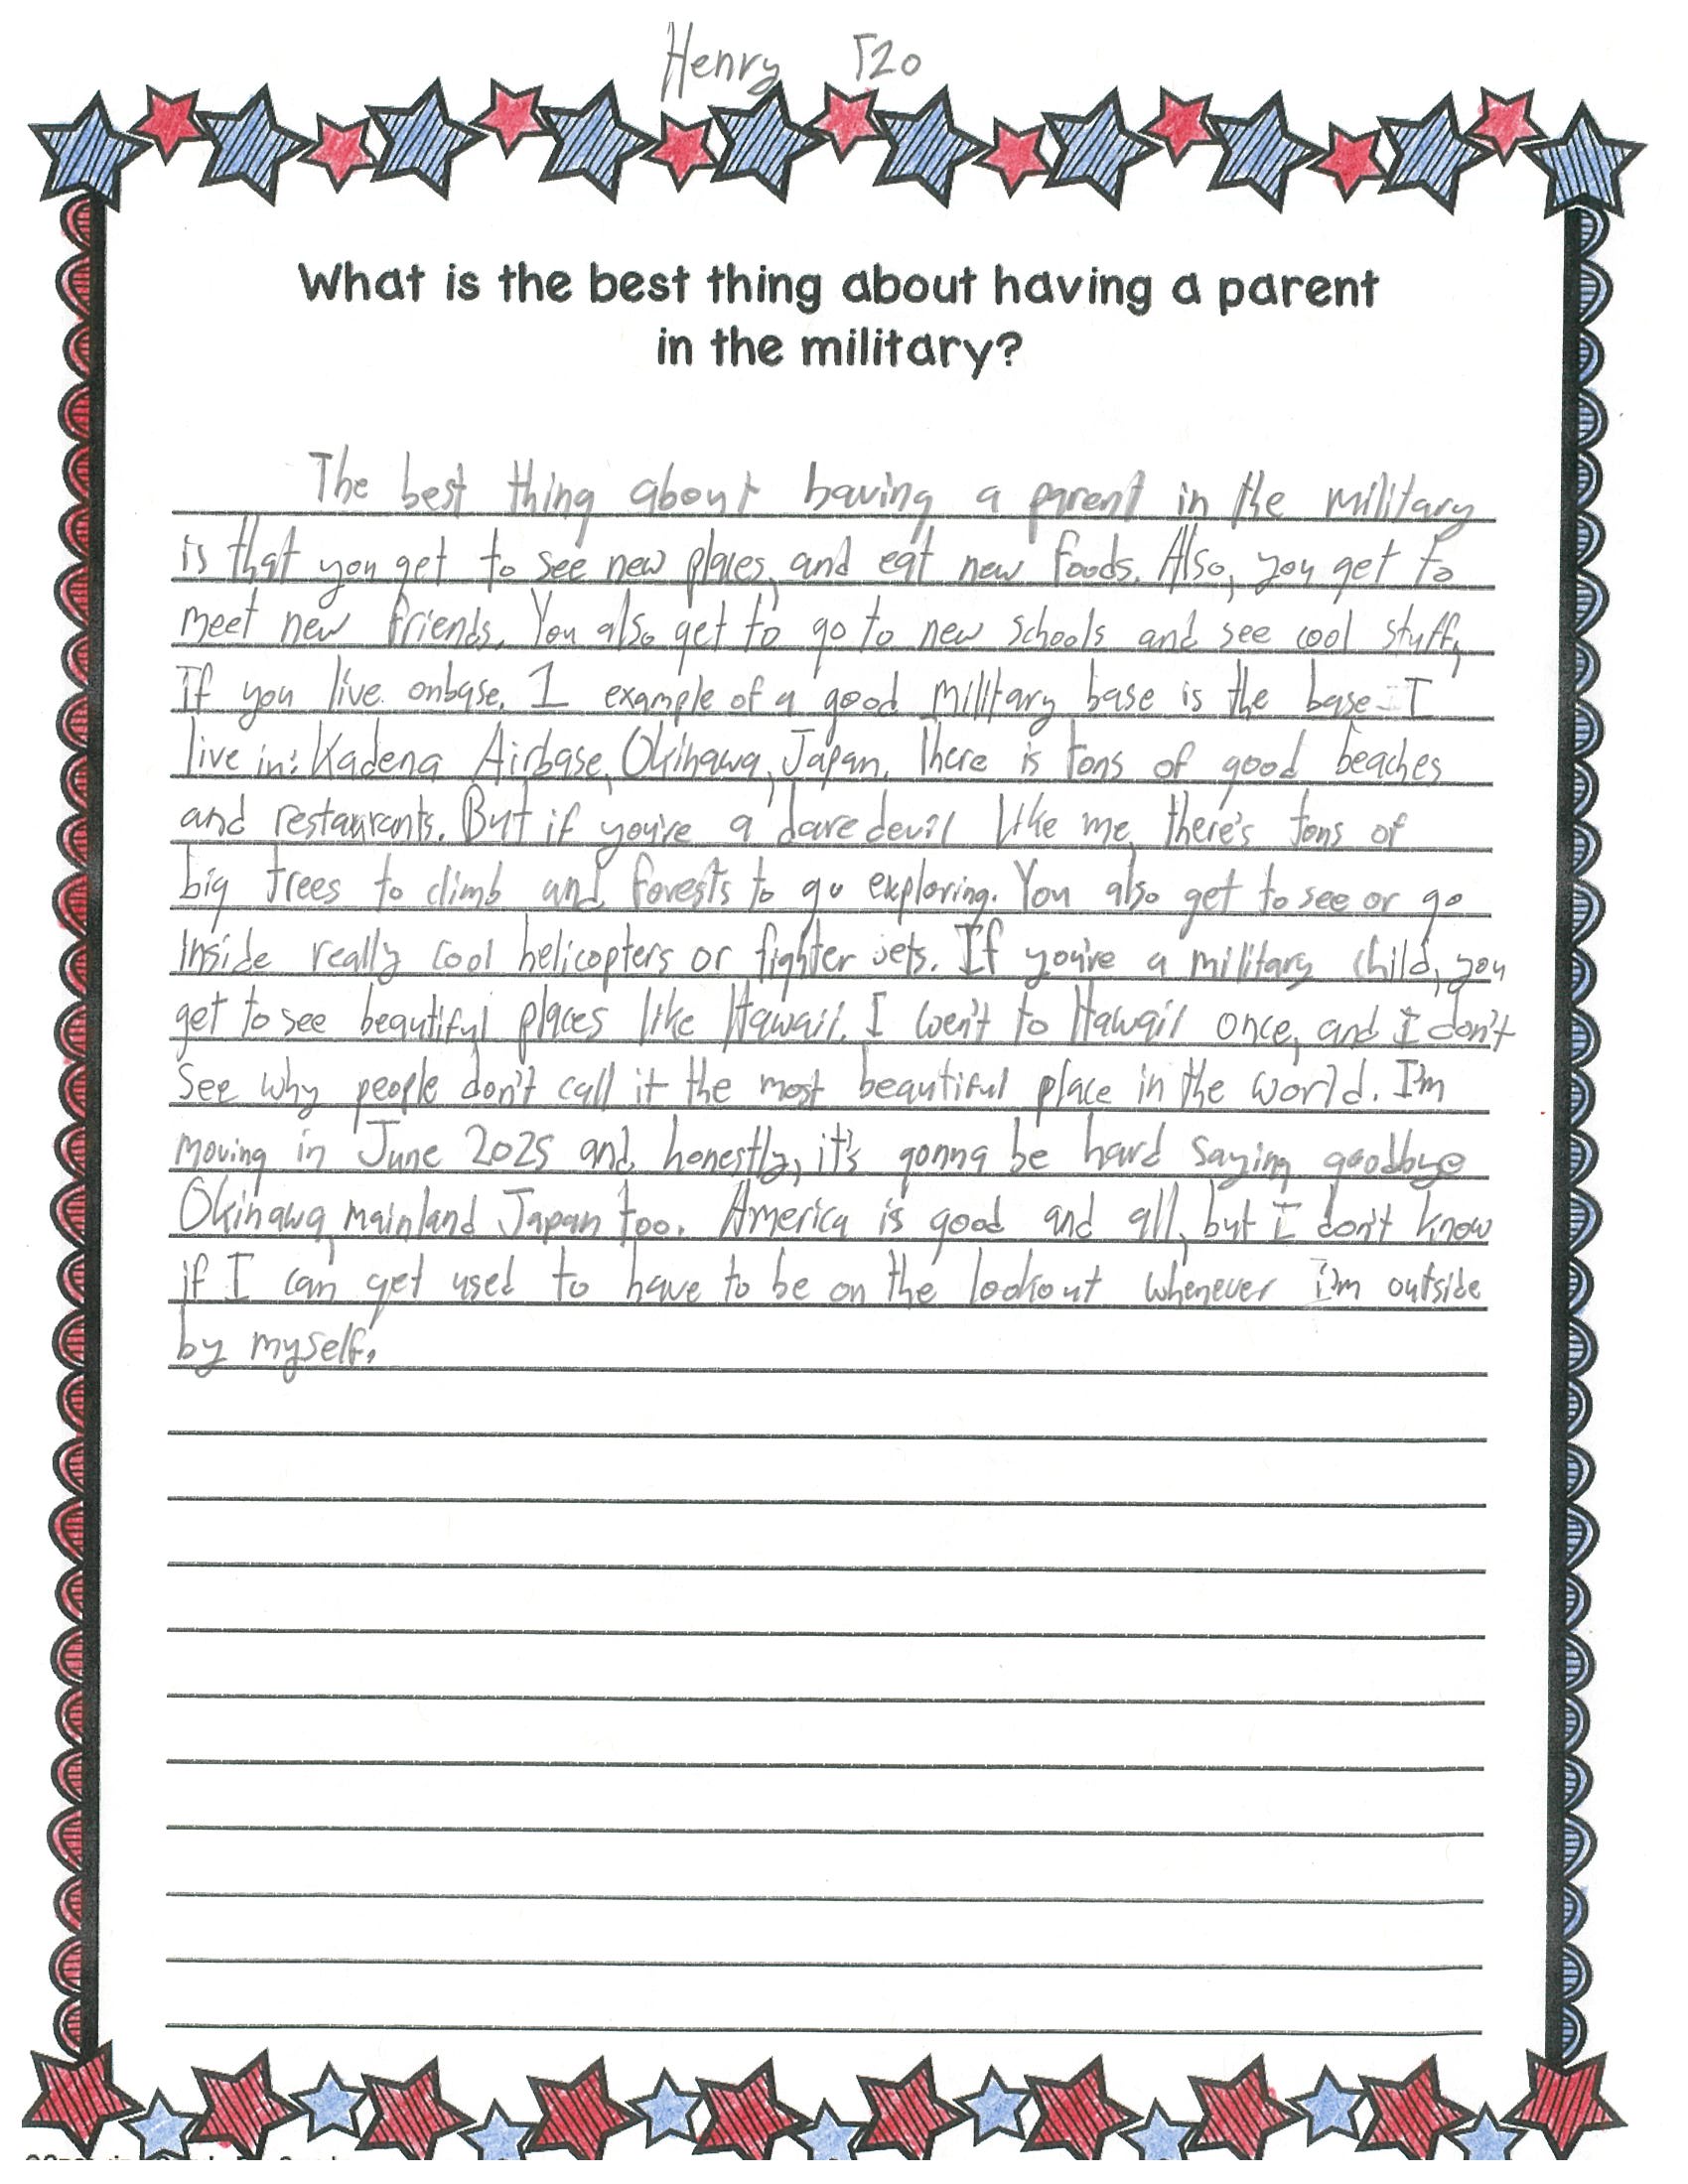 Henry T20
What is the best thing about having a parent
in the military?
The best thing about having a parent in the military
is that you get to see new places, and eat new foods. Also, you get to
meet new friends. You also get to go to new schools and see cool stuff,
If you live onbase. 1 example of a good military base is the base I
live in: Kadena Airbase, Okinawa, Japan. There is tons of good beaches
and restaurants. But if you're a daredevil like me, there's tons of
big trees to climb and forests to go exploring. You also get to see or go
inside really cool helicopters or fighter jets. If you're a military child, you
get to see beautiful places like Hawaii. I wen't to Hawaii once, and I don't
see why people don't call it the most beautiful place in the world. I'm
moving in June 2025 and, honestly, it's gonna be hard saying goodbye
Okinawa, mainland Japan too. America is good and all, but I don't know
if I can get used to have to be on the lookout whenever i'm outside
by myself.